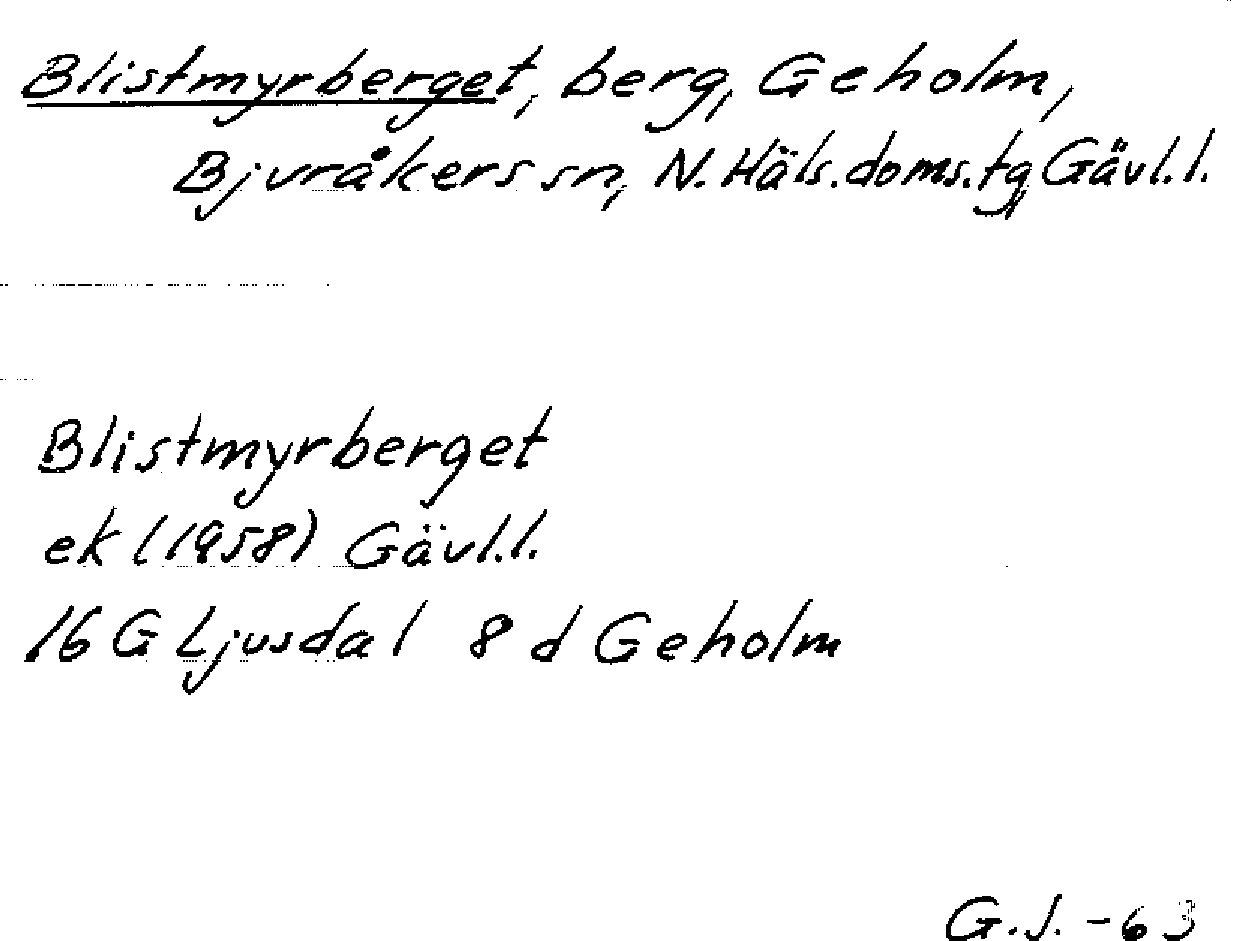 Blistmyrberget, berg, Geholm,
Bjuråkers sn, N. Häls. doms. tg, Gävl. l.
Blistmyrberget
ek (1958) Gävl. l.
16 G Ljusdal 8 d Geholm
G.J. -63